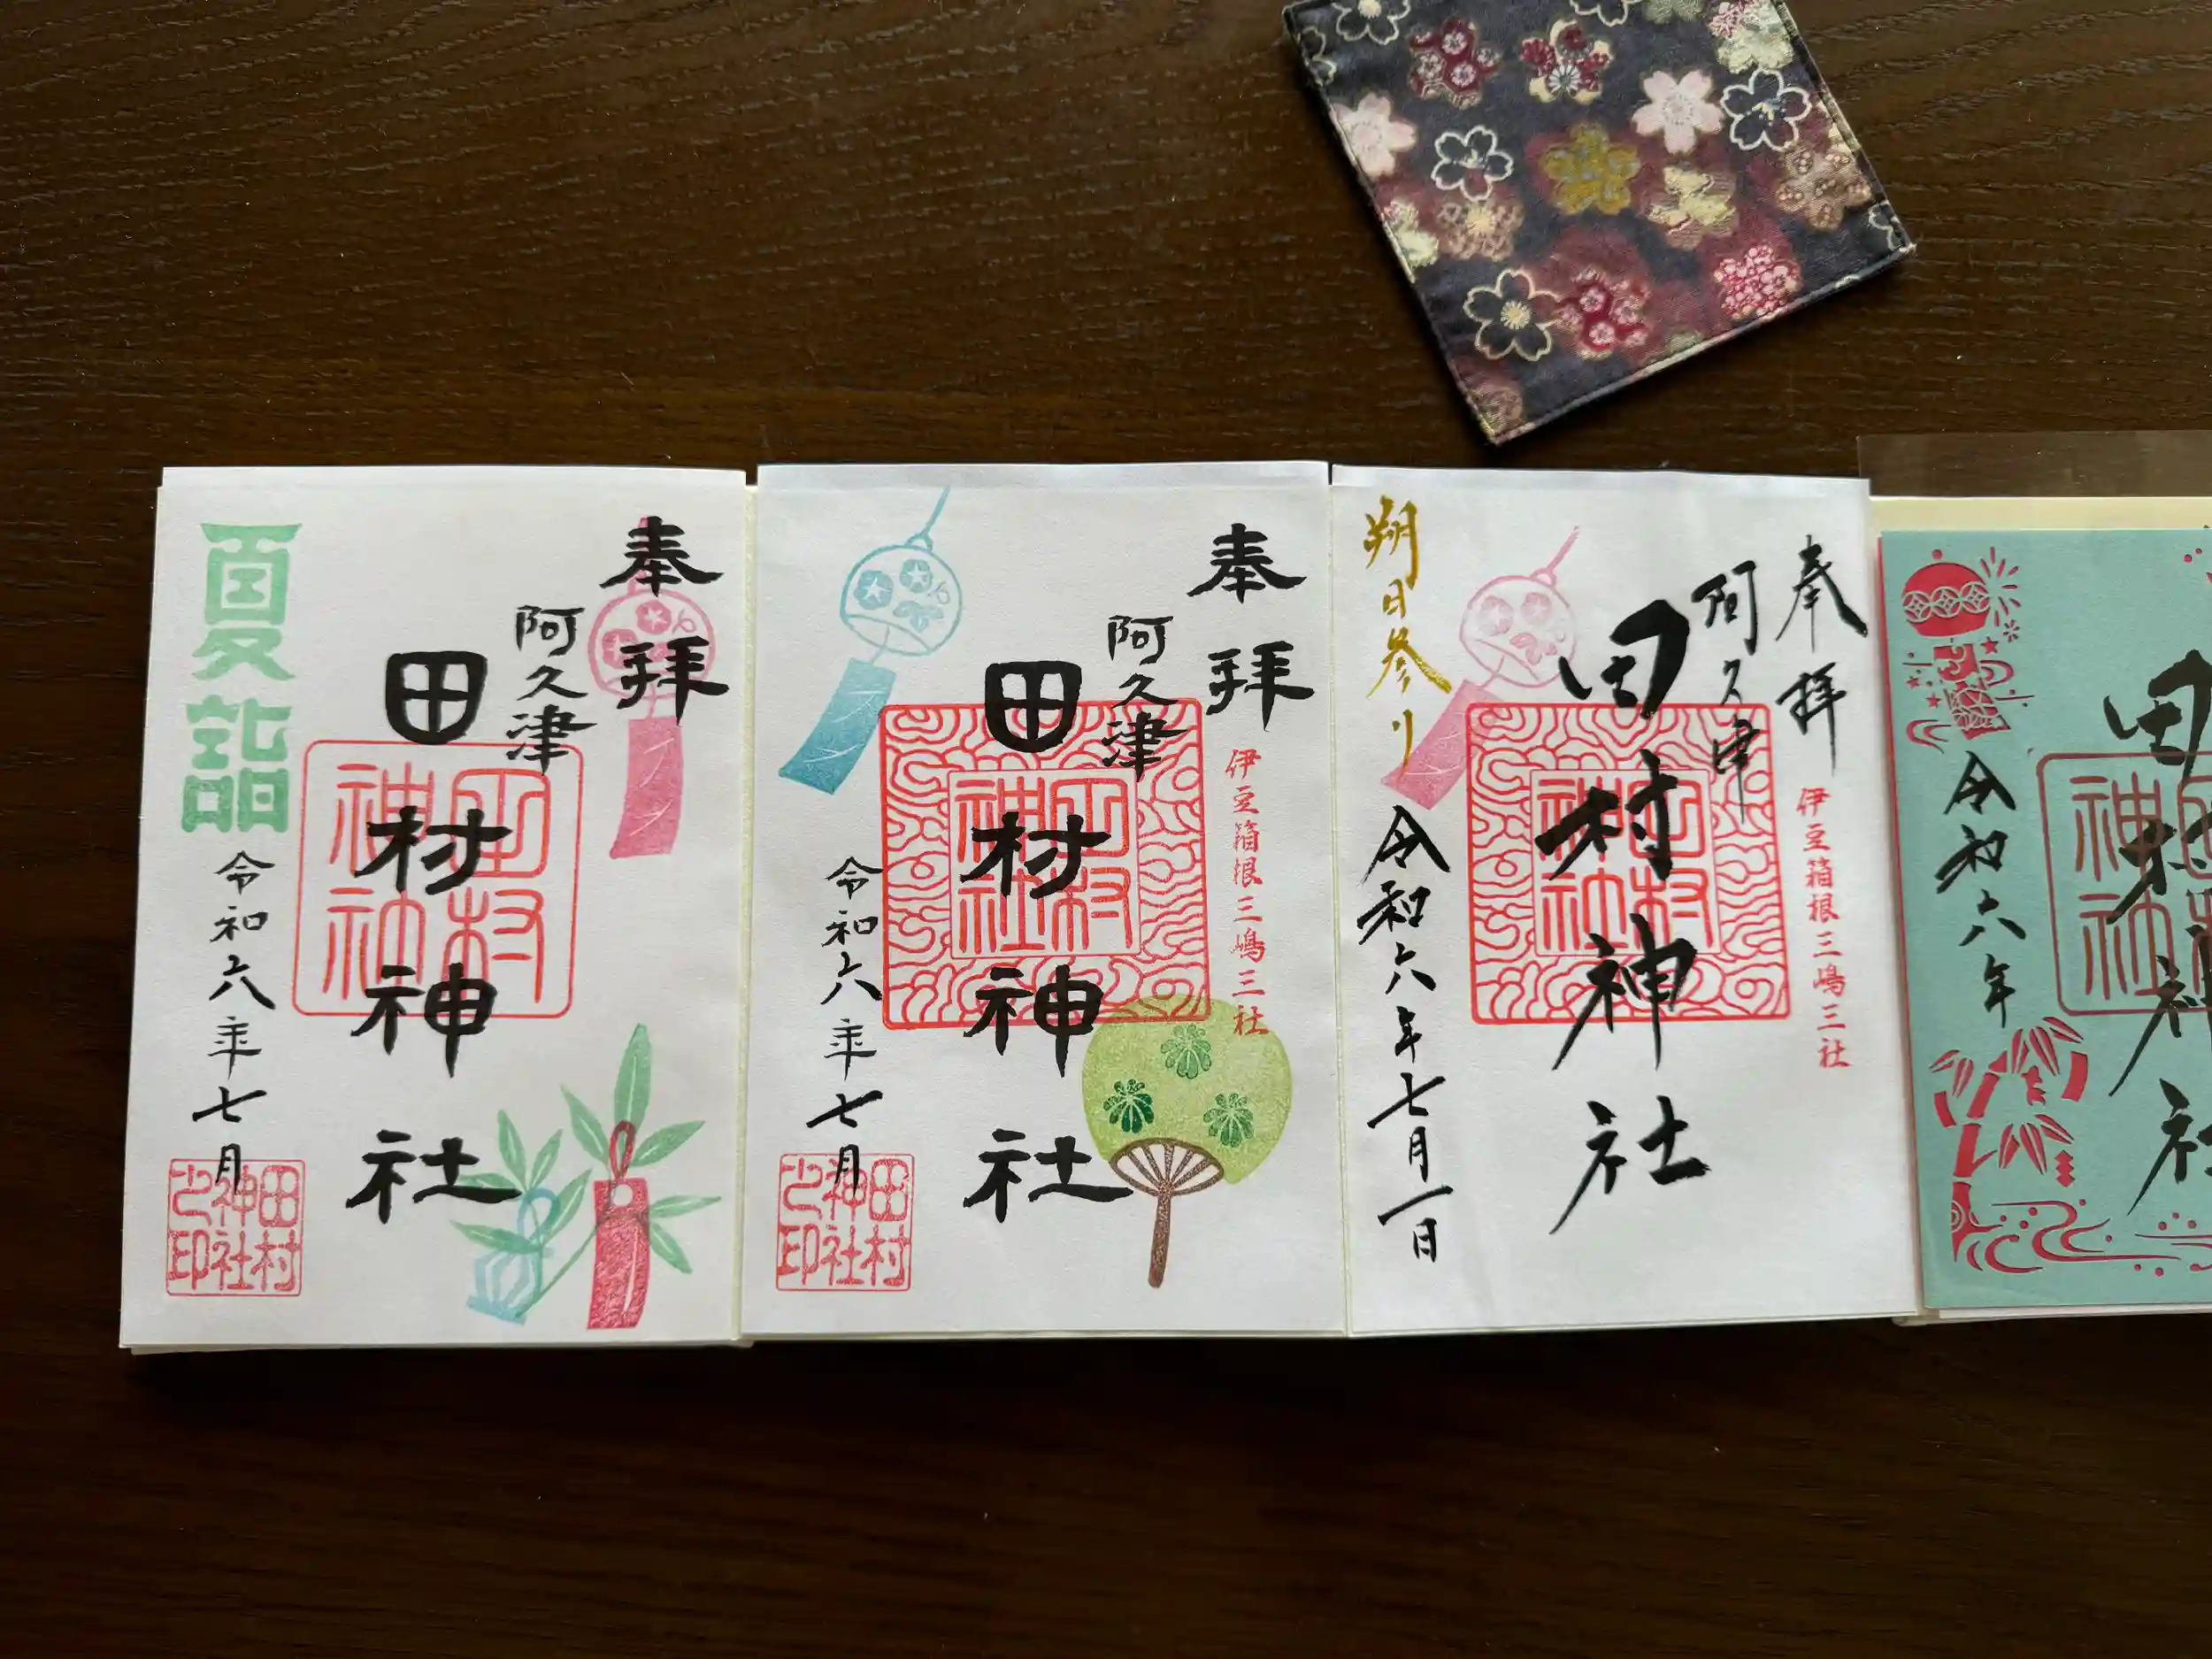 奉拝
阿久津
田村神社
田村神社
夏詣
令和六年七月
田村神社之印
奉拝
伊豆箱根三嶋三社
阿久津
田村神社
田村神社
令和六年七月
田村神社之印
奉拝
伊豆箱根三嶋三社
阿久津
田村神社
田村神社
朔日参り
令和六年七月一日
田村神社
令和六年